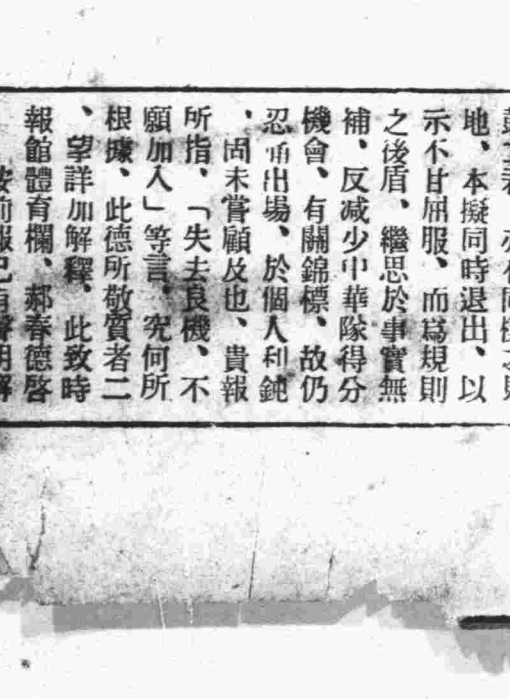 地、本擬同時退出、以
示不甘屈服、而爲規則
之後盾、繼思於事實無
補、反减少中華隊得分
機會、有關錦標、故仍
忍痛出場、於個人利鈍
、固未嘗顧及也、貴報
所指、「失去良機、不
願加入」等言、究何所
根據、此德所敬質者二
、望詳加解釋、此致時
報館體育欄、郝春德啓